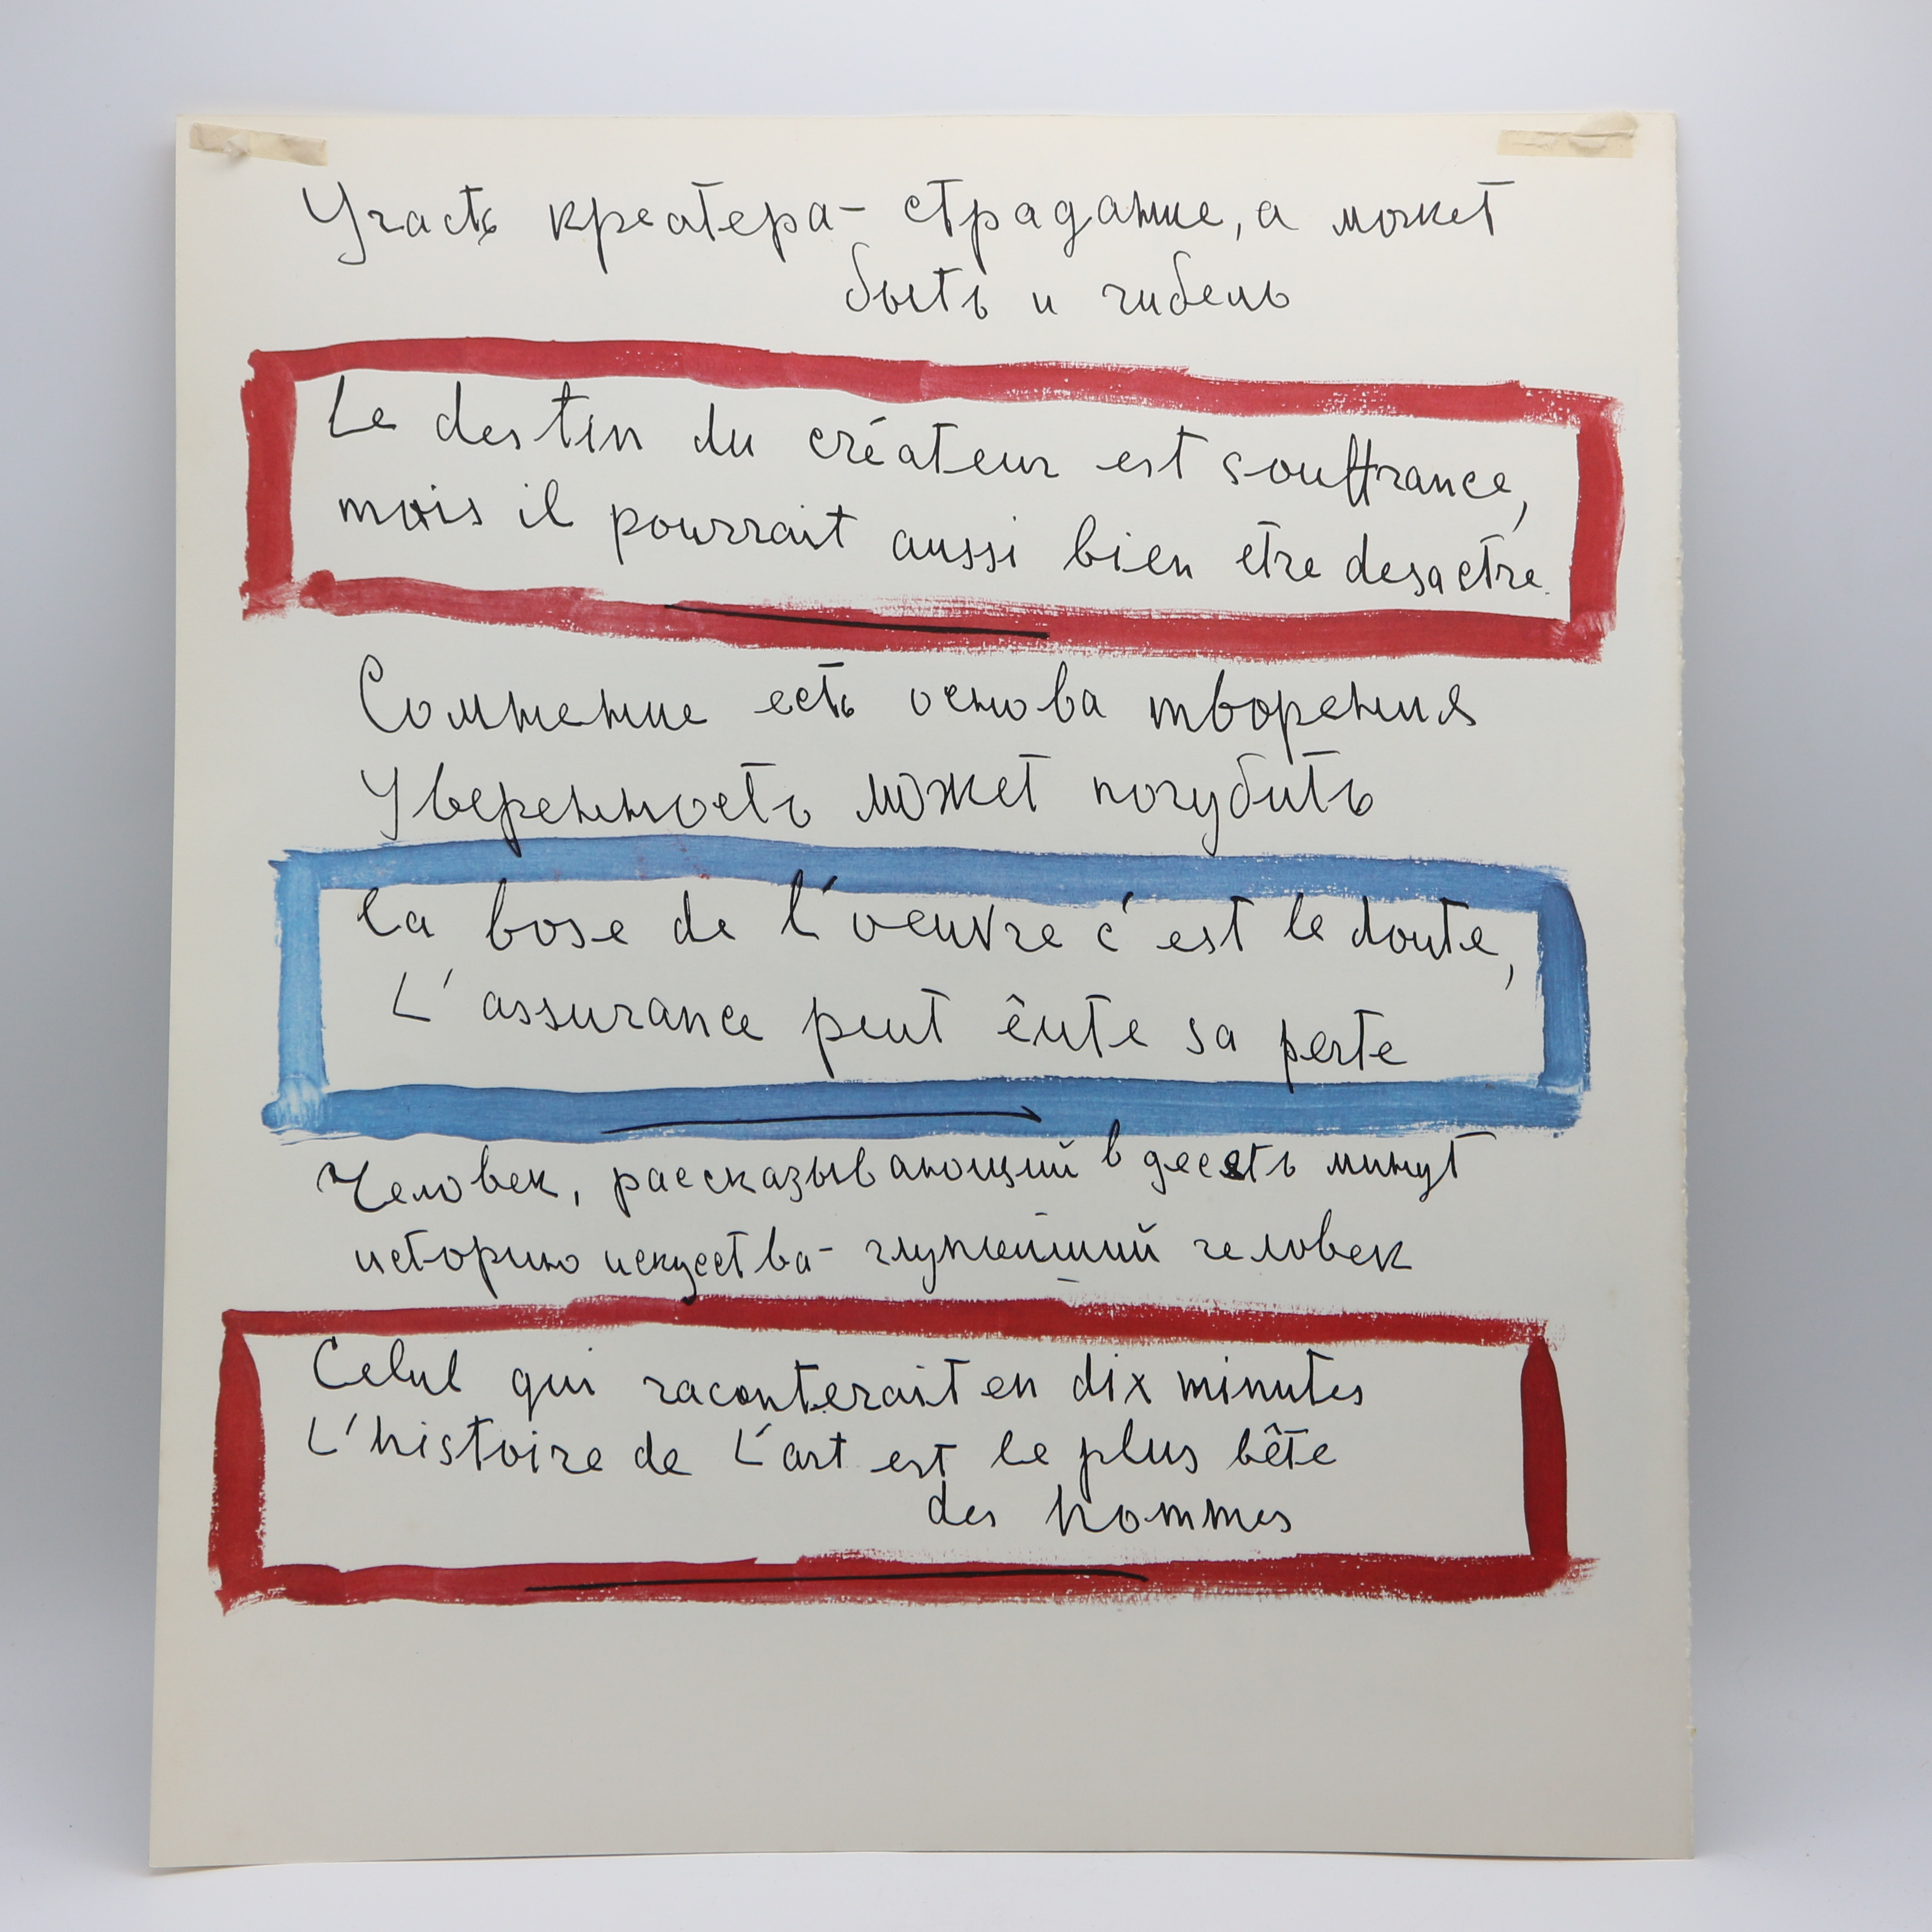 Участь креатера - страдание, а может
быть и гибель
Le destin du créateur est souffrance,
mais il pourrait aussi bien etre desactre.
Сомнение есть основа творения
Уверенность может погубить
La base de l'oeuvre c'est le doute,
L'assurance peut êute sa perte
Человек, рассказывающий в десять минут
историю искуства - глупейший человек
Celui qui raconterait en dix minutes
L'histoire de L'art est le plus bête
des hommes